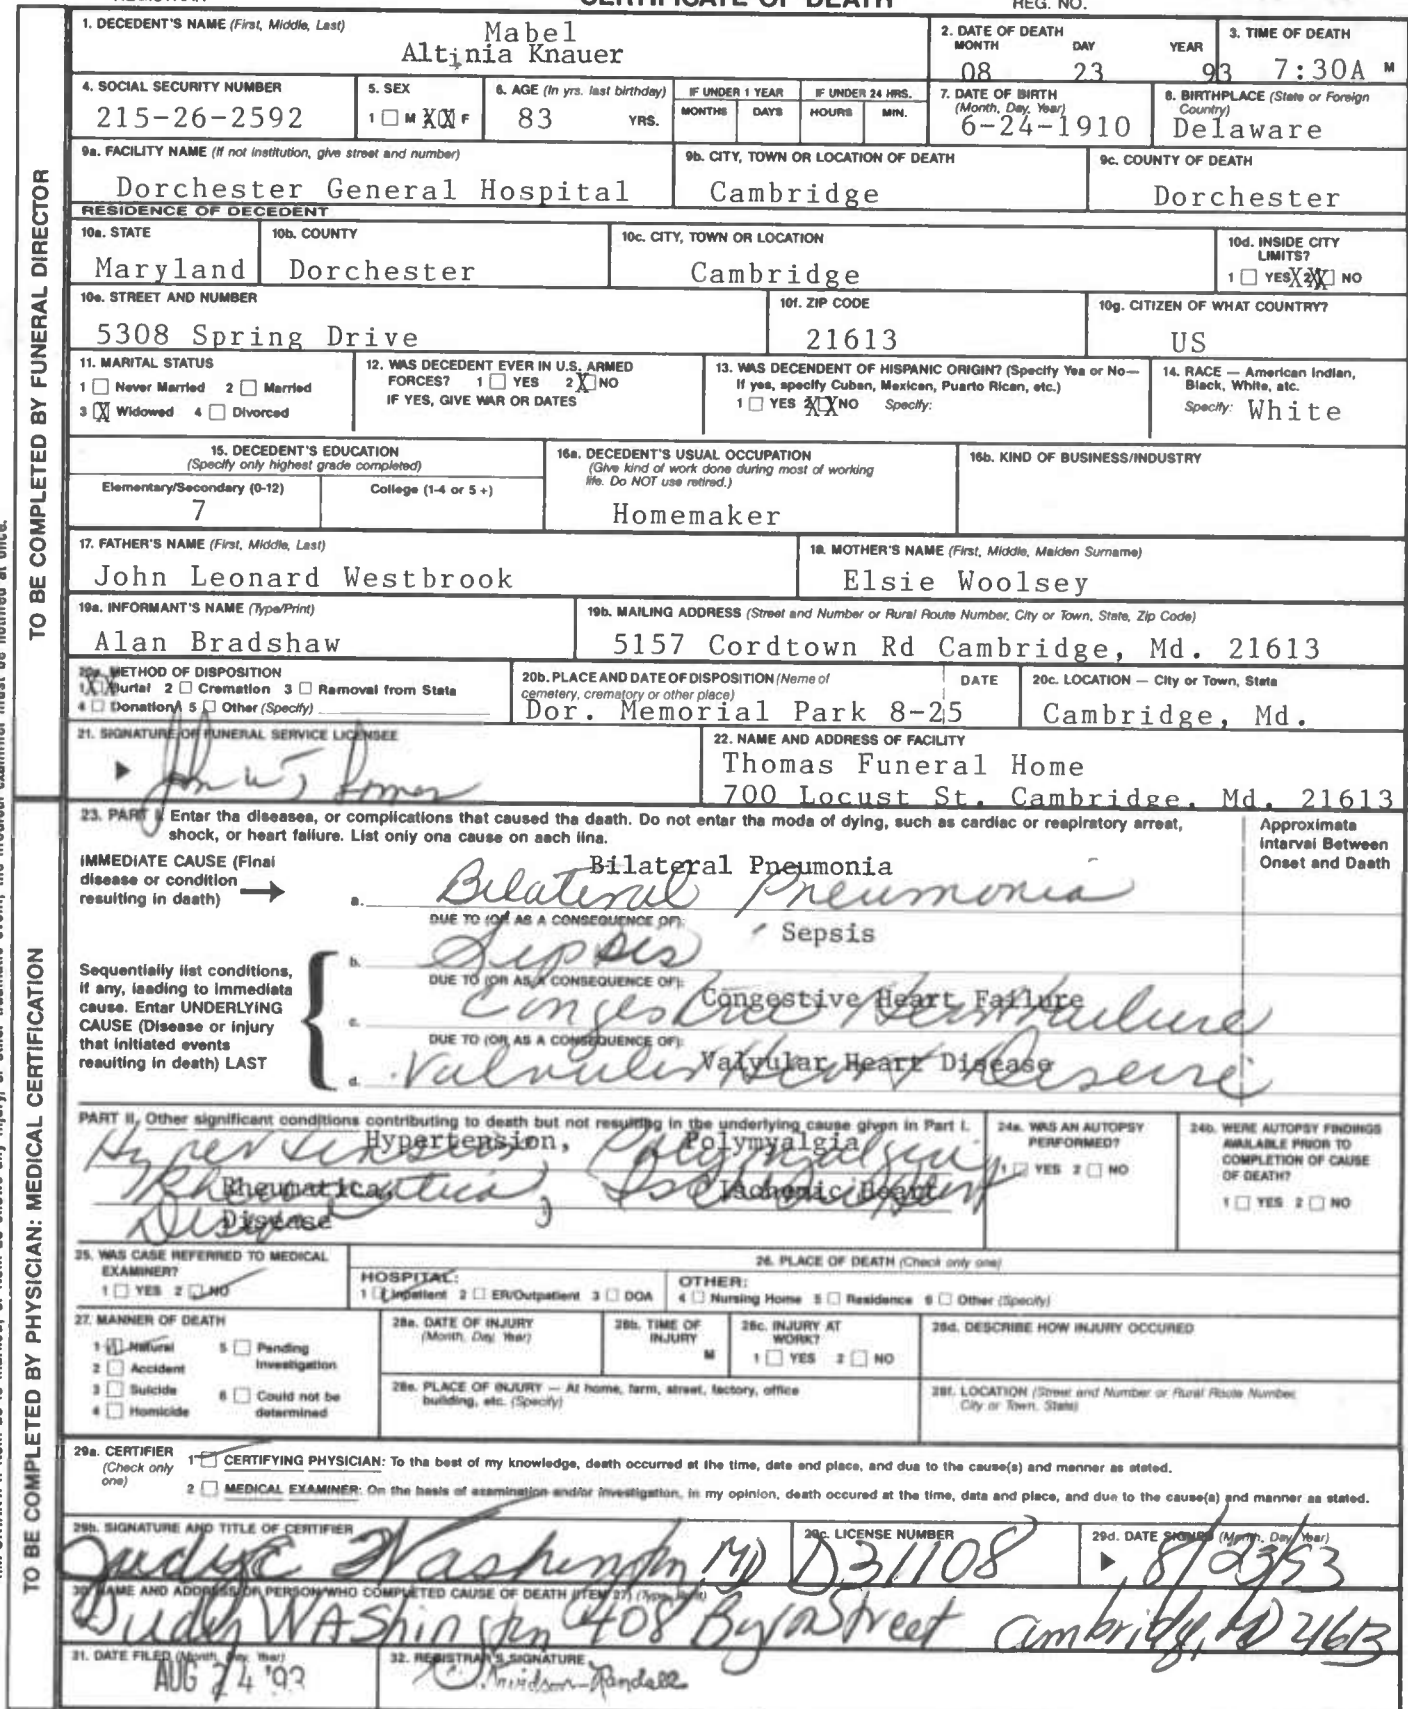 CERTIFICATE OF DEATH
REG. NO.
1. DECEDENT'S NAME (First, Middle, Last)
Mabel
Altinia Knauer
2. DATE OF DEATH
MONTH DAY YEAR
08 23 93
3. TIME OF DEATH
7:30A M
4. SOCIAL SECURITY NUMBER
215-26-2592
5. SEX
1 M XX F
6. AGE (In yrs. last birthday)
83 YRS.
IF UNDER 1 YEAR
MONTHS DAYS
IF UNDER 24 HRS.
HOURS MIN.
7. DATE OF BIRTH
(Month, Day, Year)
6-24-1910
8. BIRTHPLACE (State or Foreign Country)
Delaware
9a. FACILITY NAME (If not institution, give street and number)
Dorchester General Hospital
9b. CITY, TOWN OR LOCATION OF DEATH
Cambridge
9c. COUNTY OF DEATH
Dorchester
RESIDENCE OF DECEDENT
10a. STATE
Maryland
10b. COUNTY
Dorchester
10c. CITY, TOWN OR LOCATION
Cambridge
10d. INSIDE CITY LIMITS?
1 YES X 2 XX NO
10e. STREET AND NUMBER
5308 Spring Drive
10f. ZIP CODE
21613
10g. CITIZEN OF WHAT COUNTRY?
US
11. MARITAL STATUS
1 Never Married 2 Married
3 X Widowed 4 Divorced
12. WAS DECEDENT EVER IN U.S. ARMED
FORCES? 1 YES 2 X NO
IF YES, GIVE WAR OR DATES
13. WAS DECENDENT OF HISPANIC ORIGIN? (Specify Yes or No—
If yes, specify Cuban, Mexican, Puerto Rican, etc.)
1 YES 2 XX NO Specify:
14. RACE — American Indian,
Black, White, etc.
Specify: White
15. DECEDENT'S EDUCATION
(Specify only highest grade completed)
Elementary/Secondary (0-12) College (1-4 or 5 +)
7
16a. DECEDENT'S USUAL OCCUPATION
(Give kind of work done during most of working
life. Do NOT use retired.)
Homemaker
16b. KIND OF BUSINESS/INDUSTRY
17. FATHER'S NAME (First, Middle, Last)
John Leonard Westbrook
18. MOTHER'S NAME (First, Middle, Maiden Surname)
Elsie Woolsey
19a. INFORMANT'S NAME (Type/Print)
Alan Bradshaw
19b. MAILING ADDRESS (Street and Number or Rural Route Number, City or Town, State, Zip Code)
5157 Cordtown Rd Cambridge, Md. 21613
20a. METHOD OF DISPOSITION
1 XX Burial 2 Cremation 3 Removal from State
4 Donation 5 Other (Specify)
20b. PLACE AND DATE OF DISPOSITION (Name of
cemetery, crematory or other place)
DATE
Dor. Memorial Park 8-25
20c. LOCATION — City or Town, State
Cambridge, Md.
21. SIGNATURE OF FUNERAL SERVICE LICENSEE
John W.
22. NAME AND ADDRESS OF FACILITY
Thomas Funeral Home
700 Locust St. Cambridge, Md. 21613
TO BE COMPLETED BY FUNERAL DIRECTOR
23. PART I. Enter the diseases, or complications that caused the death. Do not enter the mode of dying, such as cardiac or respiratory arrest,
shock, or heart failure. List only one cause on each line.
Approximate
Interval Between
Onset and Death
IMMEDIATE CAUSE (Final
disease or condition
resulting in death)
Bilateral Pneumonia
a. Bilateral Pneumonia
DUE TO (OR AS A CONSEQUENCE OF):
Sepsis
b. Sepsis
DUE TO (OR AS A CONSEQUENCE OF):
Congestive Heart Failure
c. Congestive Heart Failure
DUE TO (OR AS A CONSEQUENCE OF):
Valvular Heart Disease
d. Valvular Heart Disease
Sequentially list conditions,
if any, leading to immediate
cause. Enter UNDERLYING
CAUSE (Disease or injury
that initiated events
resulting in death) LAST
PART II. Other significant conditions contributing to death but not resulting in the underlying cause given in Part I.
Hypertension, Polymyalgia
Hypertension, Polymyalgia
Rheumatica, Ischemic Heart
Rheumatica, Ischemic Heart
Disease
Disease
24a. WAS AN AUTOPSY
PERFORMED?
1 YES 2 NO
24b. WERE AUTOPSY FINDINGS
AVAILABLE PRIOR TO
COMPLETION OF CAUSE
OF DEATH?
1 YES 2 NO
25. WAS CASE REFERRED TO MEDICAL
EXAMINER?
1 YES 2 NO
26. PLACE OF DEATH (Check only one)
HOSPITAL:
1 Inpatient 2 ER/Outpatient 3 DOA
OTHER:
4 Nursing Home 5 Residence 6 Other (Specify)
27. MANNER OF DEATH
1 Natural 5 Pending
Investigation
2 Accident
3 Suicide 6 Could not be
determined
4 Homicide
28a. DATE OF INJURY
(Month, Day, Year)
28b. TIME OF
INJURY
M
28c. INJURY AT
WORK?
1 YES 2 NO
28d. DESCRIBE HOW INJURY OCCURED
28e. PLACE OF INJURY — At home, farm, street, factory, office
building, etc. (Specify)
28f. LOCATION (Street and Number or Rural Route Number,
City or Town, State)
29a. CERTIFIER
(Check only
one)
1 CERTIFYING PHYSICIAN: To the best of my knowledge, death occurred at the time, date and place, and due to the cause(s) and manner as stated.
2 MEDICAL EXAMINER: On the basis of examination and/or investigation, in my opinion, death occured at the time, data and place, and due to the cause(s) and manner as stated.
29b. SIGNATURE AND TITLE OF CERTIFIER
Washington MD
29c. LICENSE NUMBER
D31108
29d. DATE SIGNED (Month, Day, Year)
8/23/93
30. NAME AND ADDRESS OF PERSON WHO COMPLETED CAUSE OF DEATH (ITEM 27) (Type, Print)
WAShington 408 Byrn Street Cambridge, MD 21613
31. DATE FILED (Month, Day, Year)
AUG 24 '93
32. REGISTRAR'S SIGNATURE
Davidson-Randall
TO BE COMPLETED BY PHYSICIAN: MEDICAL CERTIFICATION